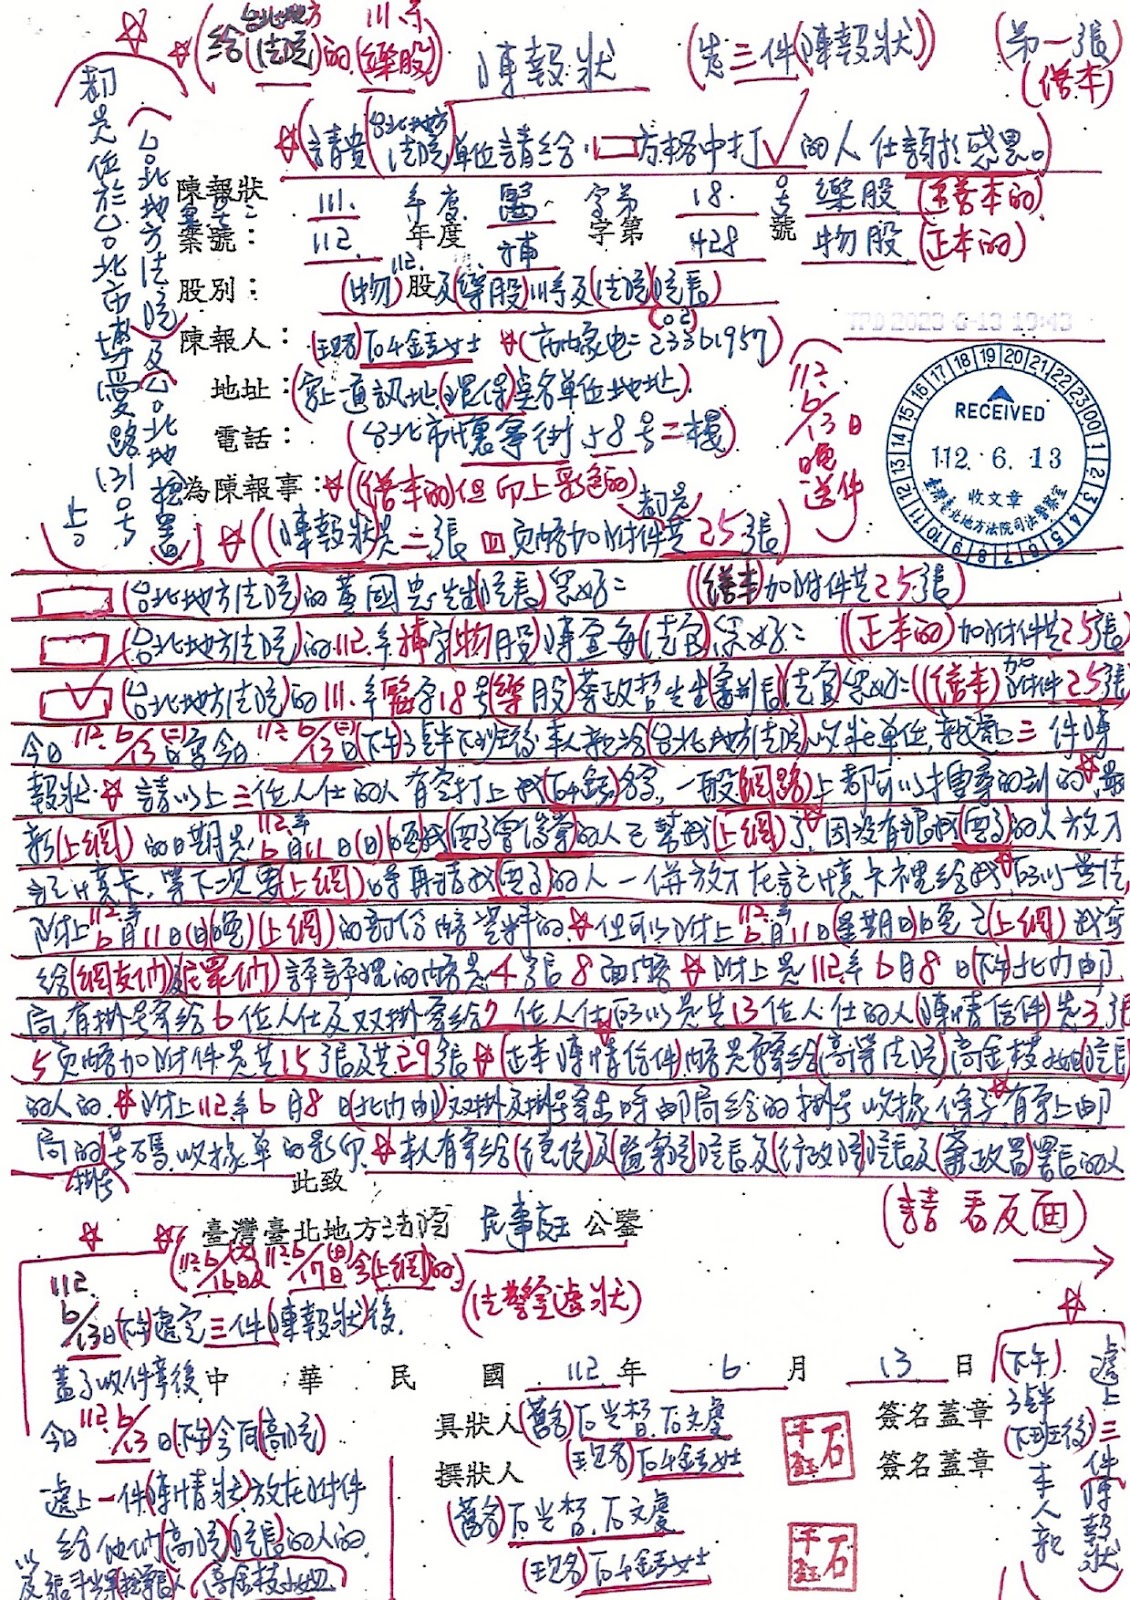 給(台北地方法院)的 111.年(藥股)
陳報狀
(為三件(陳報狀))
第一張
(繕本)
☆(請貴(台北地方法院)單位請給 □ 方格中打✓的人仕謝於感恩。)
(台北地方法院及台北地檢署)
都是位於台北市博愛路131號
陳報狀
案號: 111. 年度 醫 字第 18. 號 藥股
案號: 112. 年度 補 字第 428 號 物股 (正本的)
股別: (物)股及(藥股)
陳報人: (現名)石千鈺女士 (市內家電=(02)23361957)
地址:
電話: (台北市懷寧街58號二樓)
為陳報事: ☆((繕本的)但印上彩色的)
TPD 2023 6-13 19:43
112. 6/13日 晚 送件
RECEIVED
112. 6. 13
收文章
臺灣臺北地方法院司法警察室
☆((陳報狀)是二張四頁內容加附件共都是25張)
□ (台北地方法院)的黃國忠先生(院長)您好= ((繕本)加附件共25張)
□ (台北地方法院)的112.年補字(物股)(法官)您好= ((正本的)加附件共25張)
☑ (台北地方法院)的111.年醫字18號(藥股)蔡政哲先生(審判長)(法官)您好=((繕本)加附件25張)
今日112.6/13日(二)寫今日112.6/13日(二)(下午)3點半下班後本人親給(台北地方法院)收狀單位,親遞三件陳
報狀.☆請以上三位人仕的人有空打上我(石千鈺)名字,一般(網路)上都可以搜尋的到的☆最
新(上網)的日期是112.年6月11日(日)晚我的人已幫我(上網)了☆因沒有跟我的人放入
記憶卡,等下次要(上網)時再請我的人一併放入在記憶卡裡給我☆所以無法
附上112.年6月11日(日)晚(上網)的部份內容資料的☆但可以附上112.年6月11日(星期日)晚已(上網)我寫
給(網友們)及(民眾們)評評理的內容是4張8面內容☆附上是112.年6月8日(下午)北門郵
局,有掛號寄給6位人仕及双掛寄給7位人仕☆所以是共13位人仕的人(陳情信件)是3張
5頁內容加附件是共15張及共29張☆(正本陳情信件)內容是寄給(高等法院)高金枝小姐(院長)
的人的☆附上112.年6月8日(北門郵)双掛及掛號寄出時郵局給的掛號收據條子☆有穿上郵
局的掛號號碼.收據單的影印☆本人有寄給(總統)及(監察院)院長及(行政院)院長及(廉政署)署長的人
此致
臺灣臺北地方法院 民事庭 公鑒
(請看反面)
(法警室遞狀)
112.6/13日(下午)遞完三件(陳報狀)後,
蓋了收件章後
今日112.6/13日(下午)今同(高院)
遞上一件(陳情狀)放在附件
給他們(高院)(院長)的人的,
(高金枝小姐)
中 華 民 國 112 年 6 月 13 日
具狀人 (舊名)石光智.石文慶 簽名蓋章
(現名)石千鈺女士
撰狀人 簽名蓋章
(舊名)石光智.石文慶
(現名)石千鈺女士
石千鈺
石千鈺
遞上三件陳報狀
(下午)3點半(下班後)本人親